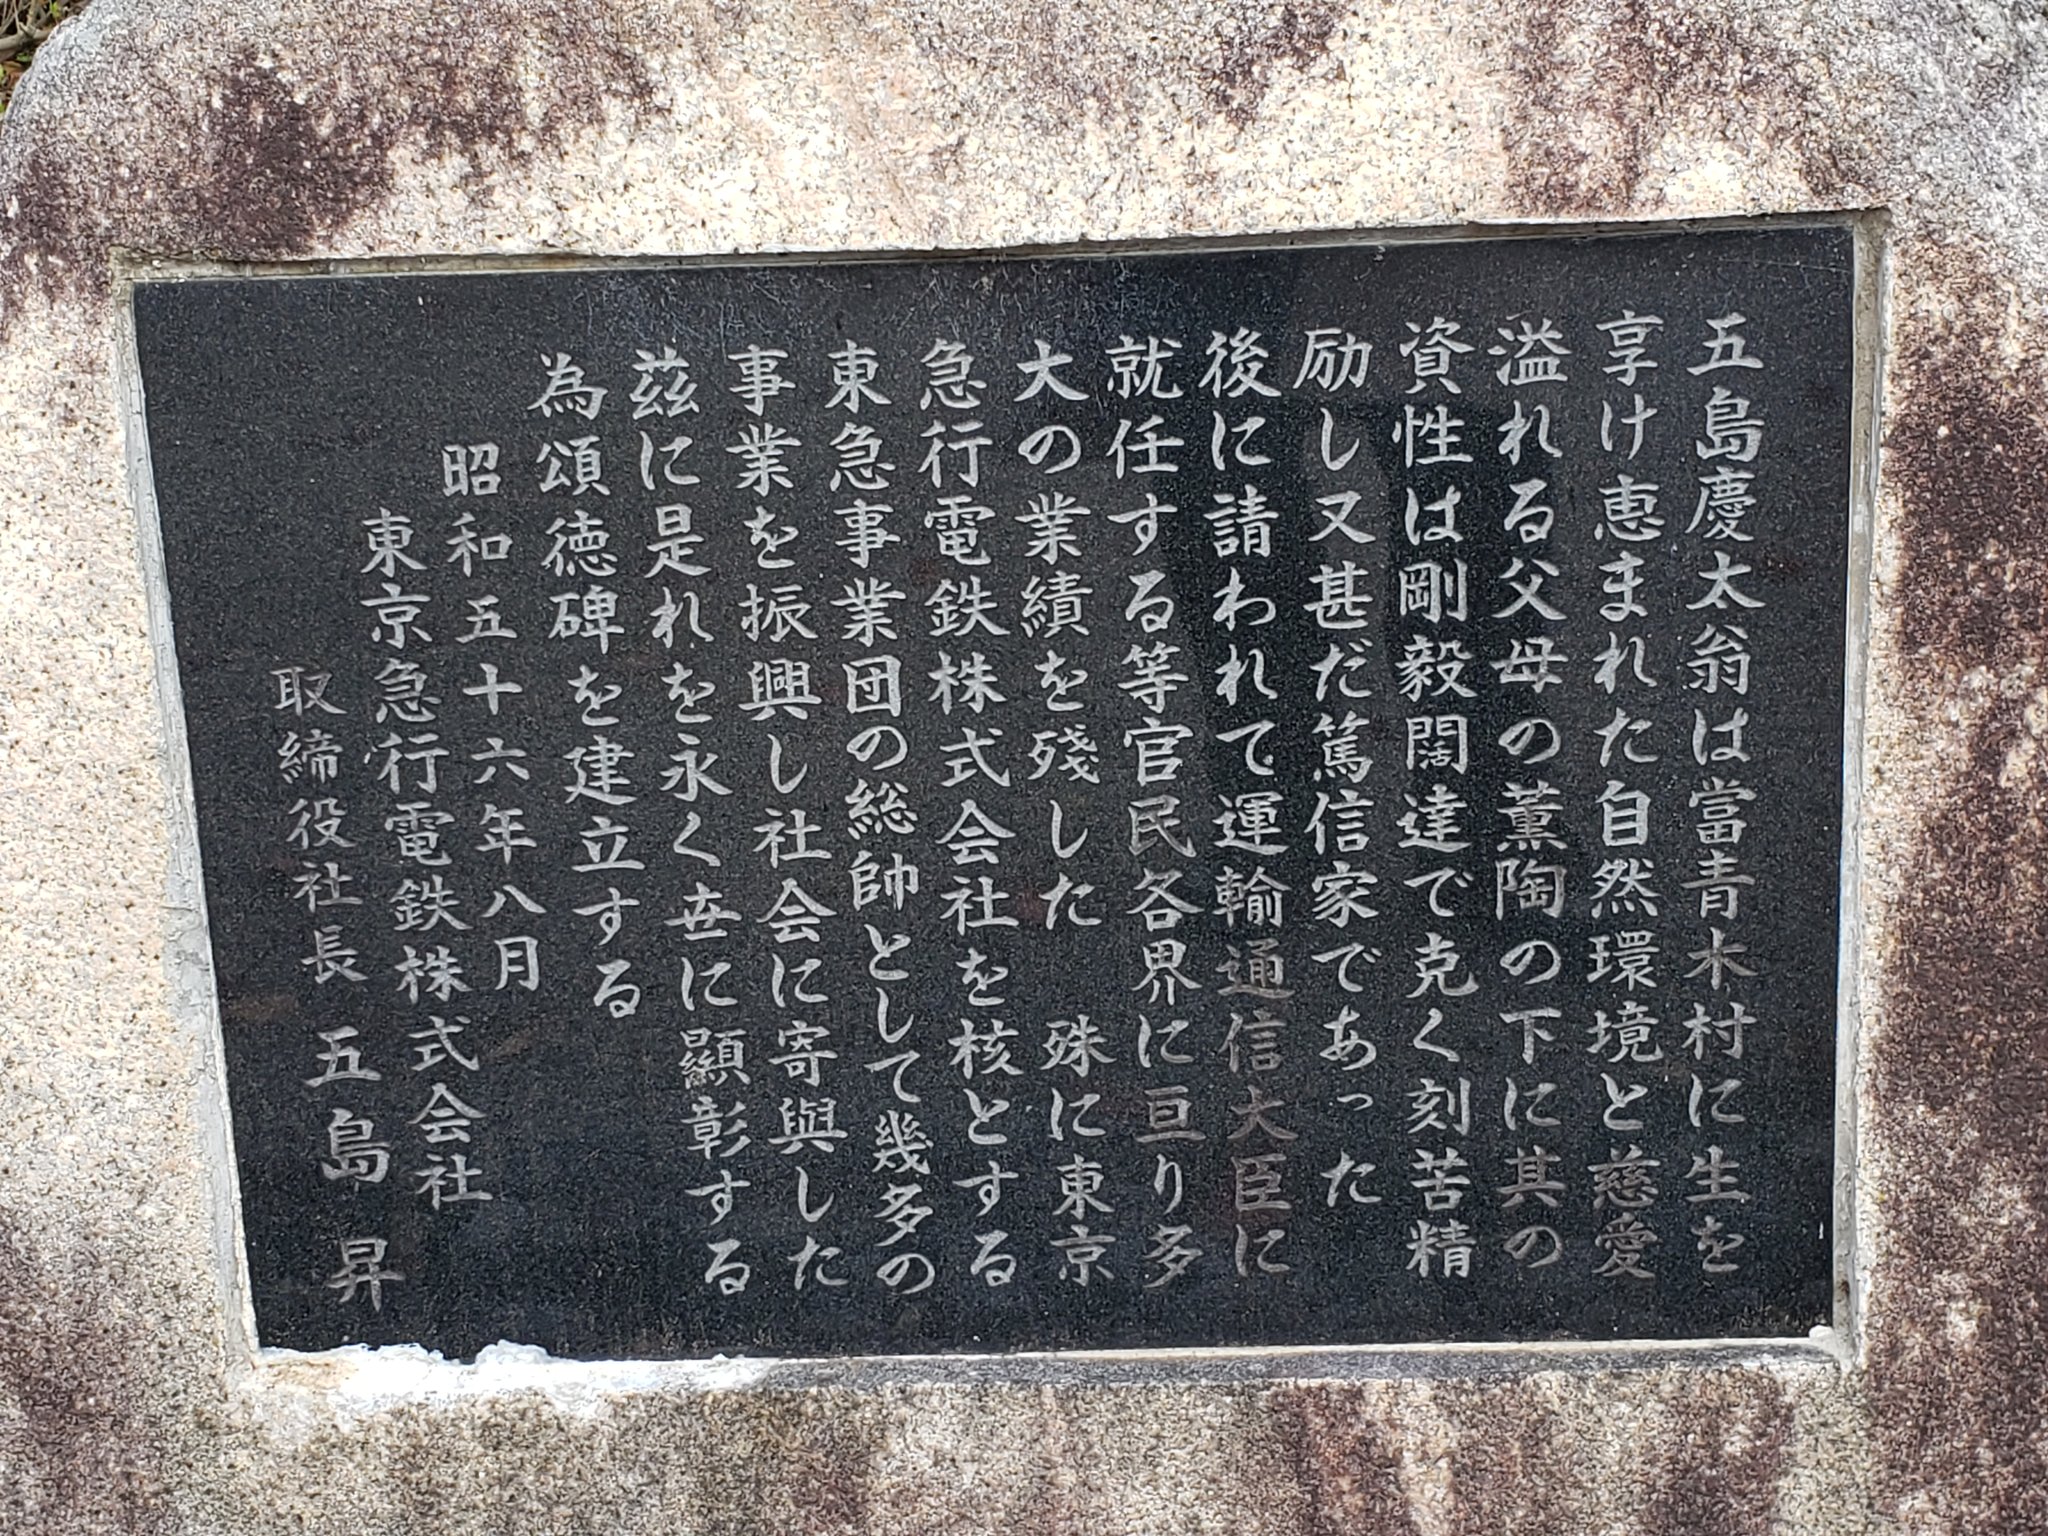 五島慶太翁は當青木村に生を
享け恵まれた自然環境と慈愛
溢れる父母の薫陶の下に其の
資性は剛毅闊達で克く刻苦精
励し又甚だ篤信家であった
後に請われて運輸通信大臣に
就任する等官民各界に亘り多
大の業績を残した　殊に東京
急行電鉄株式会社を核とする
東急事業団の総帥として幾多の
事業を振興し社会に寄與した
茲に是れを永く世に顯彰する
為頌徳碑を建立する
昭和五十六年八月
東京急行電鉄株式会社
取締役社長　五島　昇